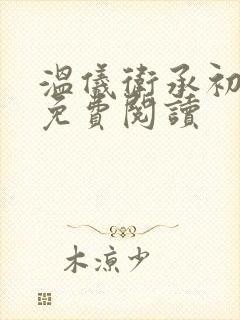 溫儀衛承初
免費閱讀
木涼少